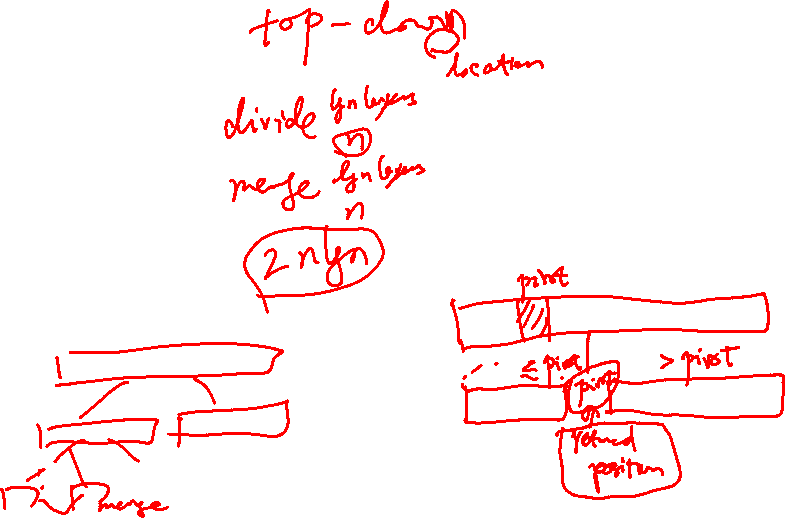 top-down
location
divide lgn layers
n
merge lgn layers
n
2nlgn
pivot
≤ pivot > pivot
pivot
returned
position
merge